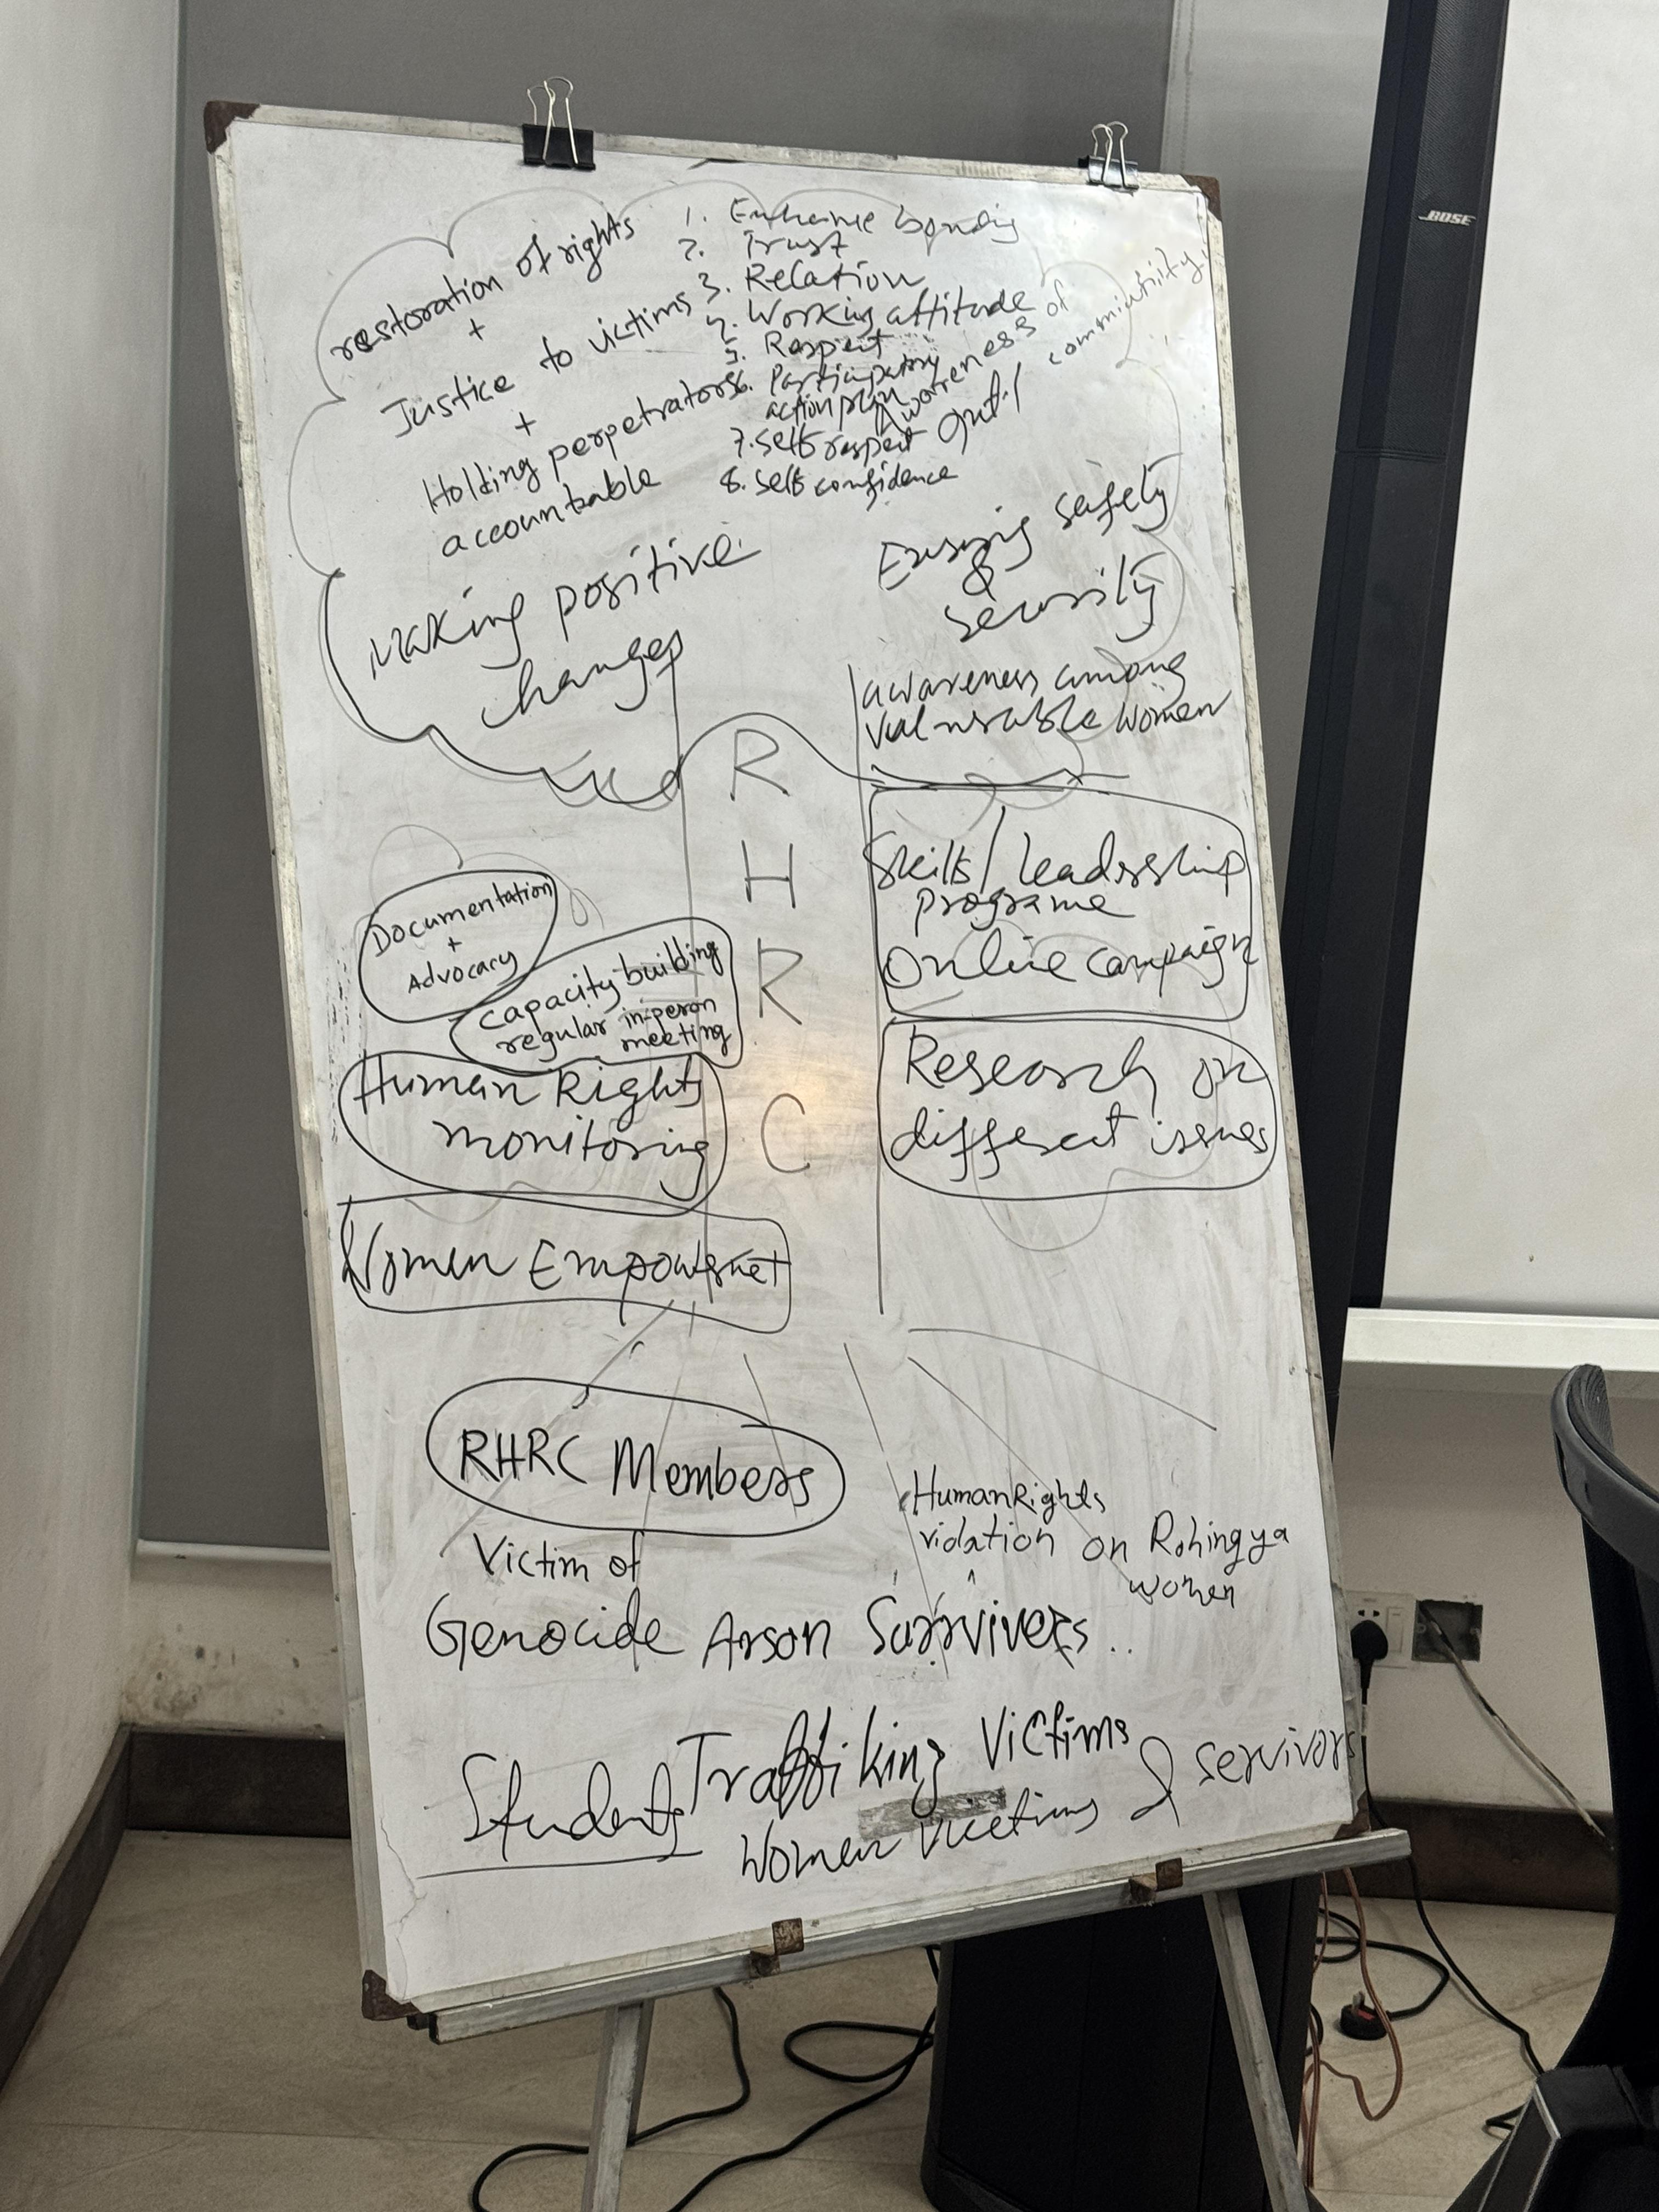 restoration of rights
+
Justice to victims
+
Holding perpetrators
accountable
1. Enhance bonding
2. Trust
3. Relation
4. Working attitude
5. Respect
6. Participatory
action plan
7. Self respect
8. Self confidence
Awareness of
community
Making positive
changes
safety
&
security
awareness among
women
R
H
R
C
Documentation
+
Advocacy
capacity building
regular in-peron
meeting
Human Rights
monitoring
Women
Skills/leadership
programe
Online campaign
Research on
different issues
RHRC Members
Victim of
Genocide Arson
Human Rights
violation on Rohingya
women
Students
Victims
Women victims & servivors
BOSE